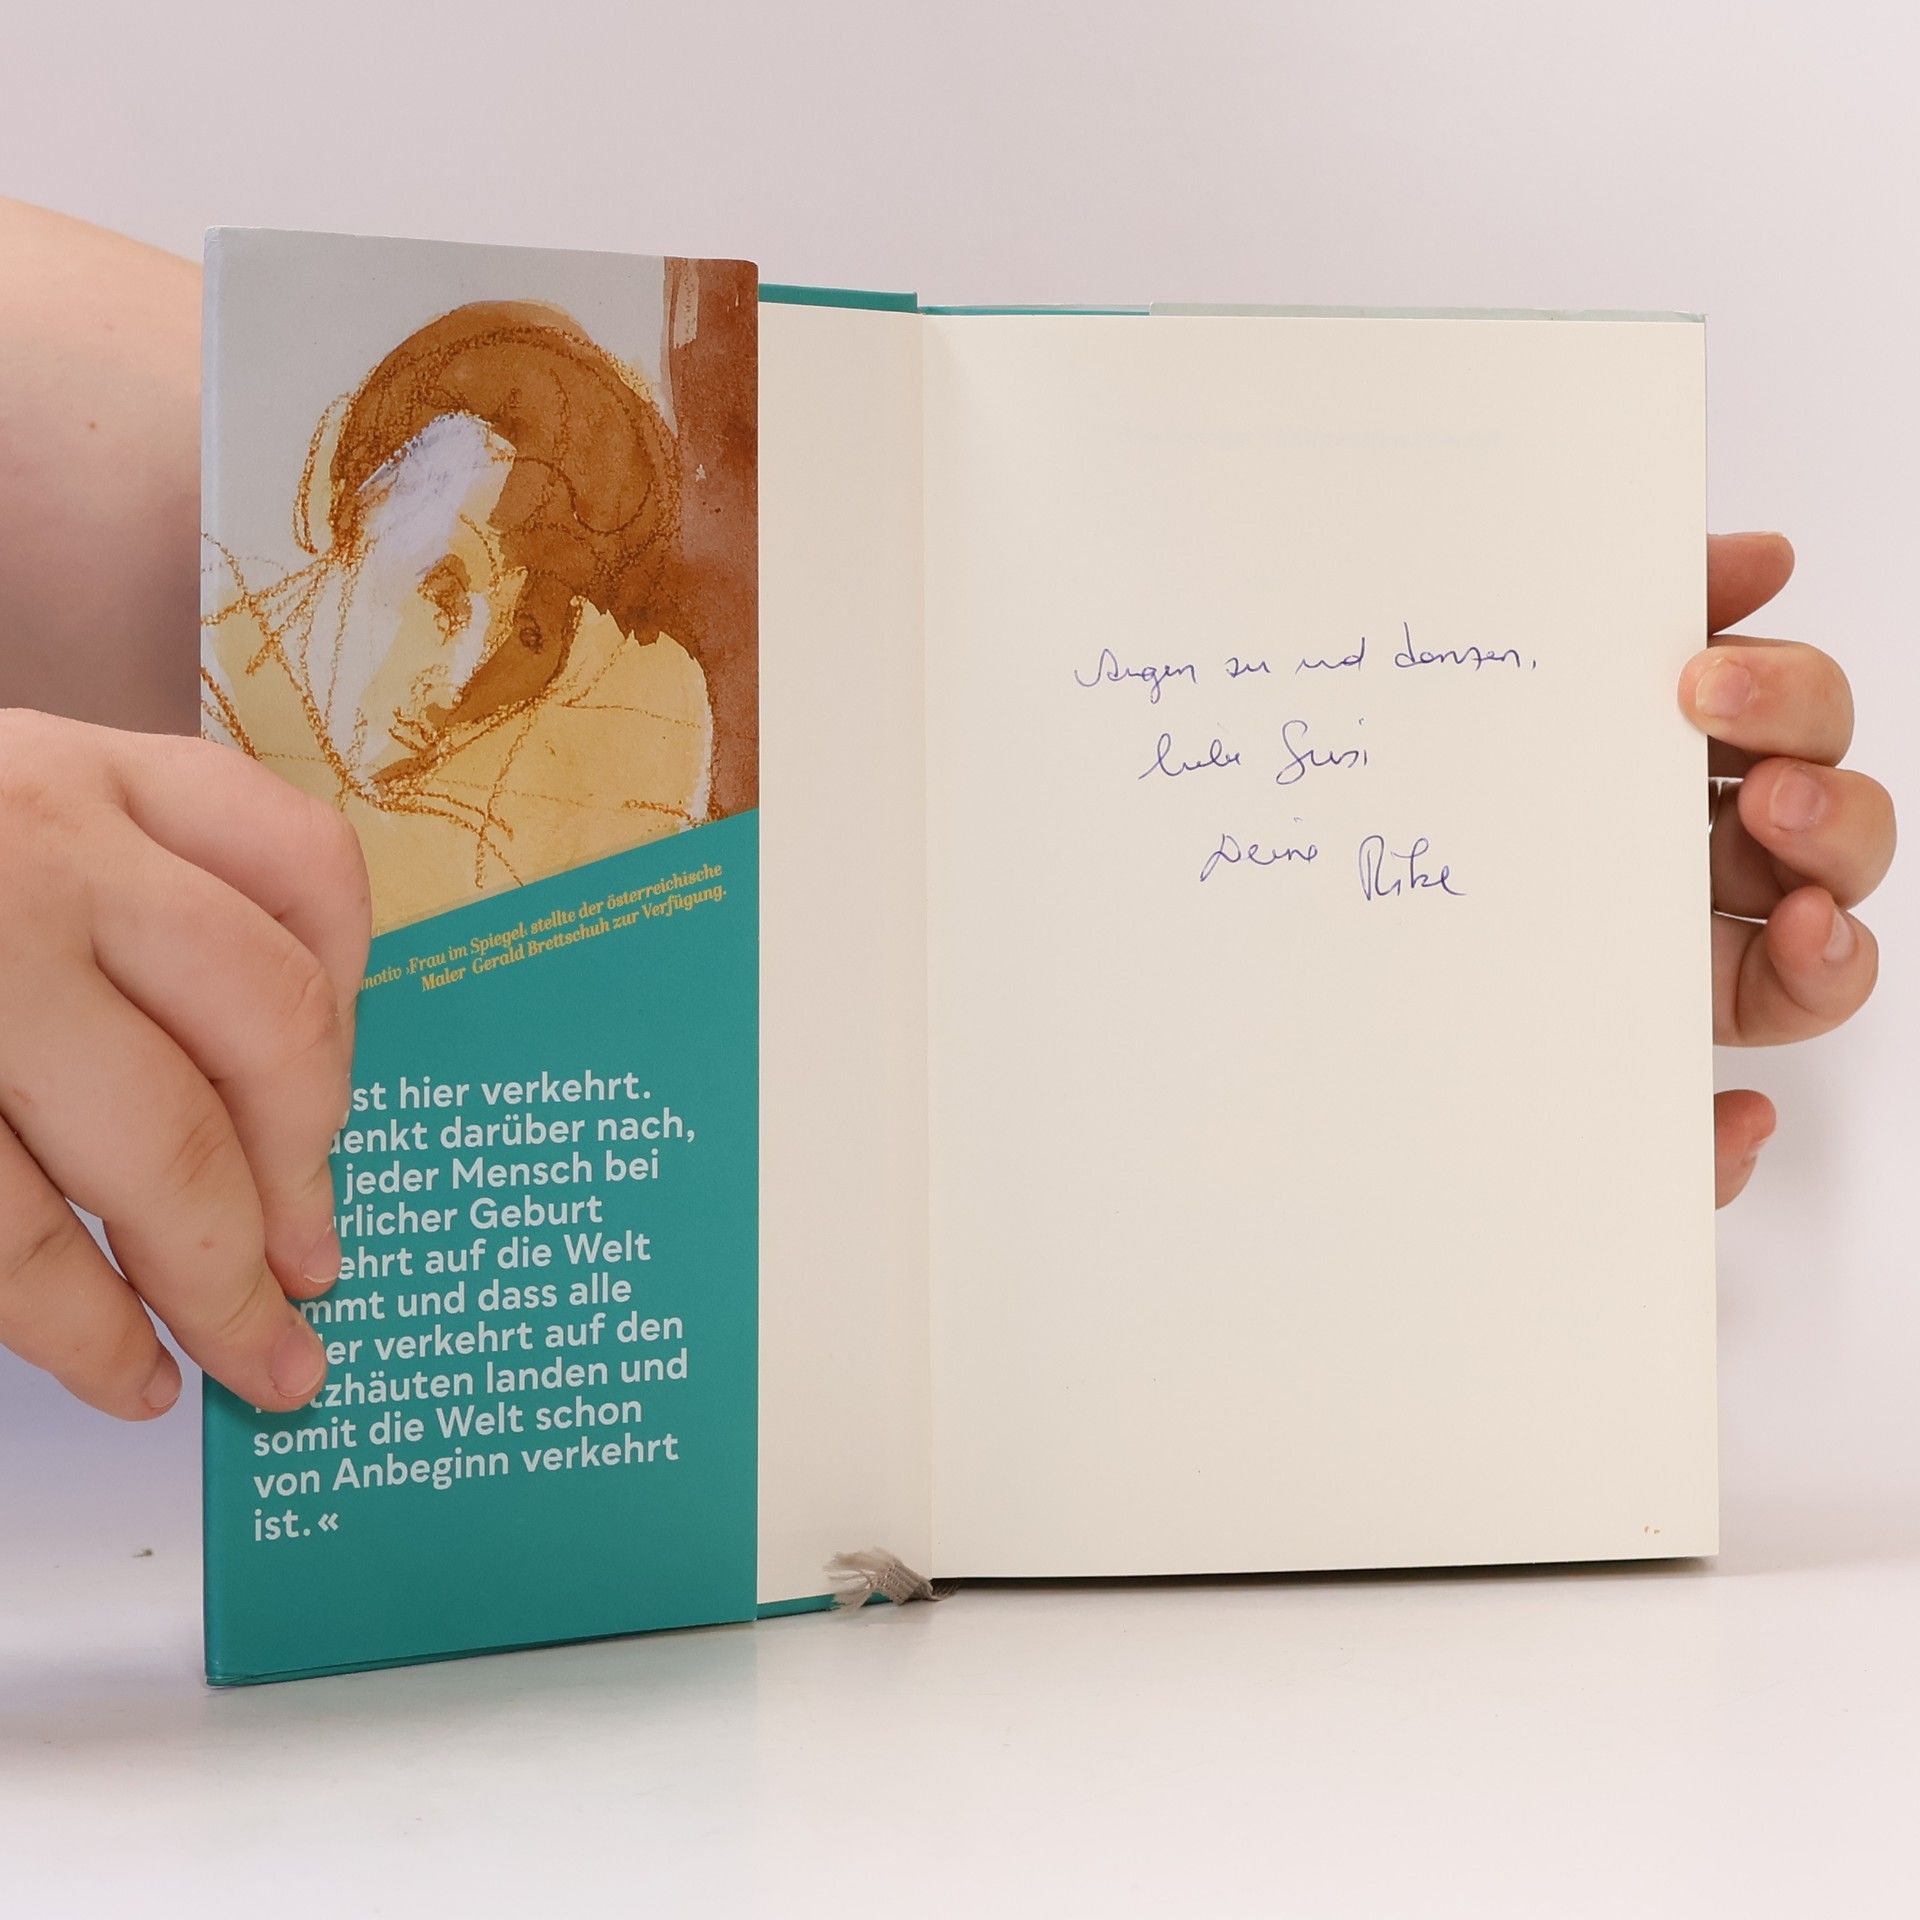 motiv ›Frau im Spiegel‹ stellte der österreichische
Maler Gerald Brettschuh zur Verfügung.
st hier verkehrt.
denkt darüber nach,
jeder Mensch bei
rlicher Geburt
ehrt auf die Welt
mmt und dass alle
er verkehrt auf den
tzhäuten landen und
somit die Welt schon
von Anbeginn verkehrt
ist.«
Augen zu und tanzen,
liebe Susi
Deine Rike